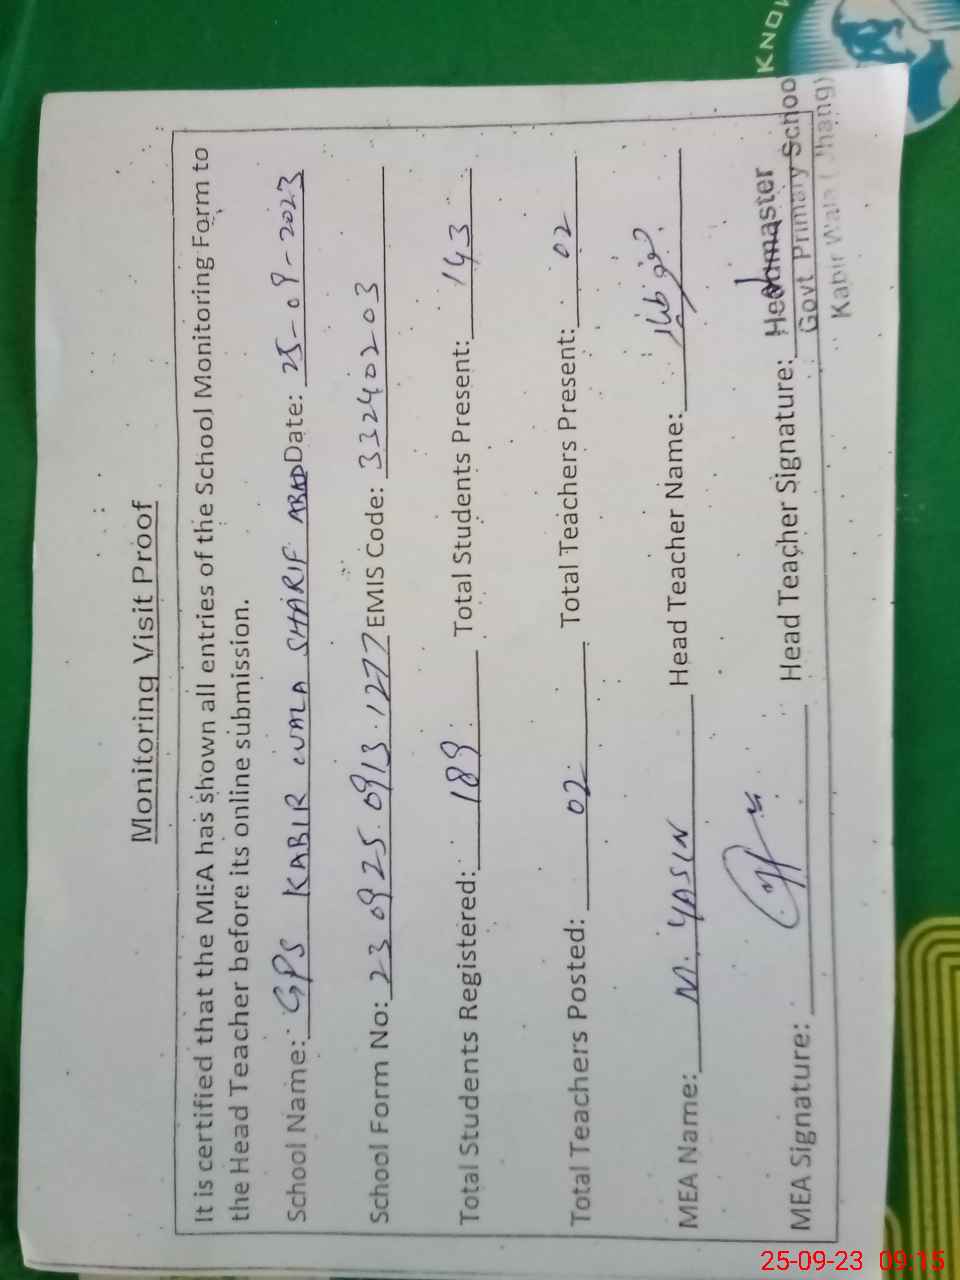 Monitoring Visit Proof
It is certified that the MEA has shown all entries of the School Monitoring Form to
the Head Teacher before its online submission.
School Name: GPS KABIR WALA SHARIF ABAD Date: 25-09-2023
School Form No: 23 0925.0913.1277 EMIS Code: 33240203
Total Students Registered: 189 Total Students Present: 143
Total Teachers Posted: 02 Total Teachers Present: 02
MEA Name: M. YASIN Head Teacher Name:
MEA Signature: Head Teacher Signature: Headmaster
Govt. Primary Schoo
Kabir Wala (Jhang)
KNOW
25-09-23 09:15